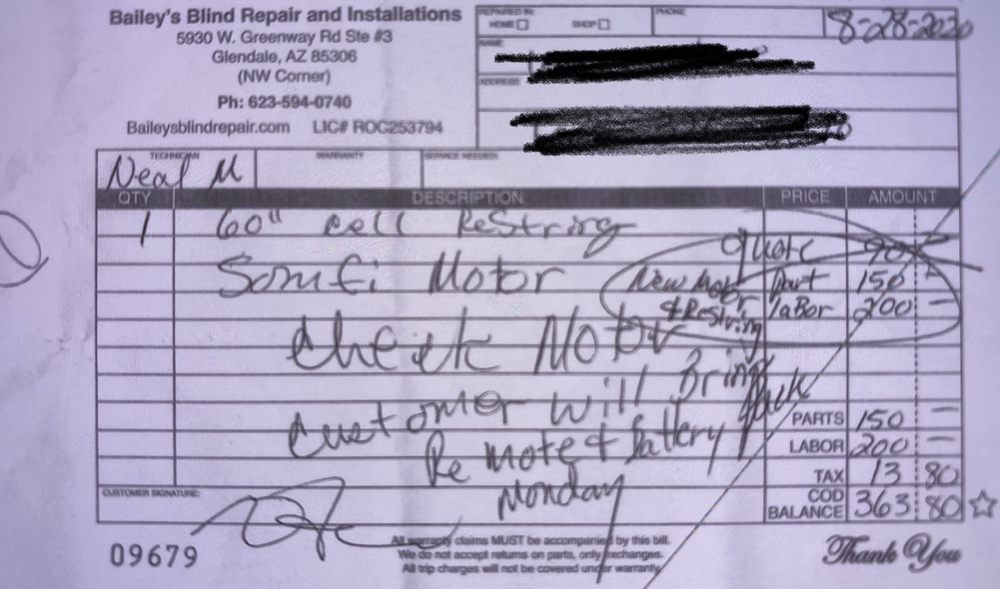 Bailey's Blind Repair and Installations
5930 W. Greenway Rd Ste #3
Glendale, AZ 85306
(NW Corner)
Ph: 623-594-0740
Baileysblindrepair.com LIC# ROC253794
REPAIRED IN:
HOME SHOP
PHONE
8-28-2020
NAME
ADDRESS
TECHNICIAN WARRANTY SERVICE NEEDED
Neal M
QTY DESCRIPTION PRICE AMOUNT
1 60" cell ReString quote 90
Somfi Motor New Motor Part 150 —
& ReString laBor 200 —
Check Motor
Customer will Bring Back
Remote & Battery
Monday
PARTS 150 —
LABOR 200 —
TAX 13 80
COD BALANCE 363 80
CUSTOMER SIGNATURE:
09679
All warranty claims MUST be accompanied by this bill.
We do not accept returns on parts, only exchanges.
All trip charges will not be covered under warranty.
Thank You